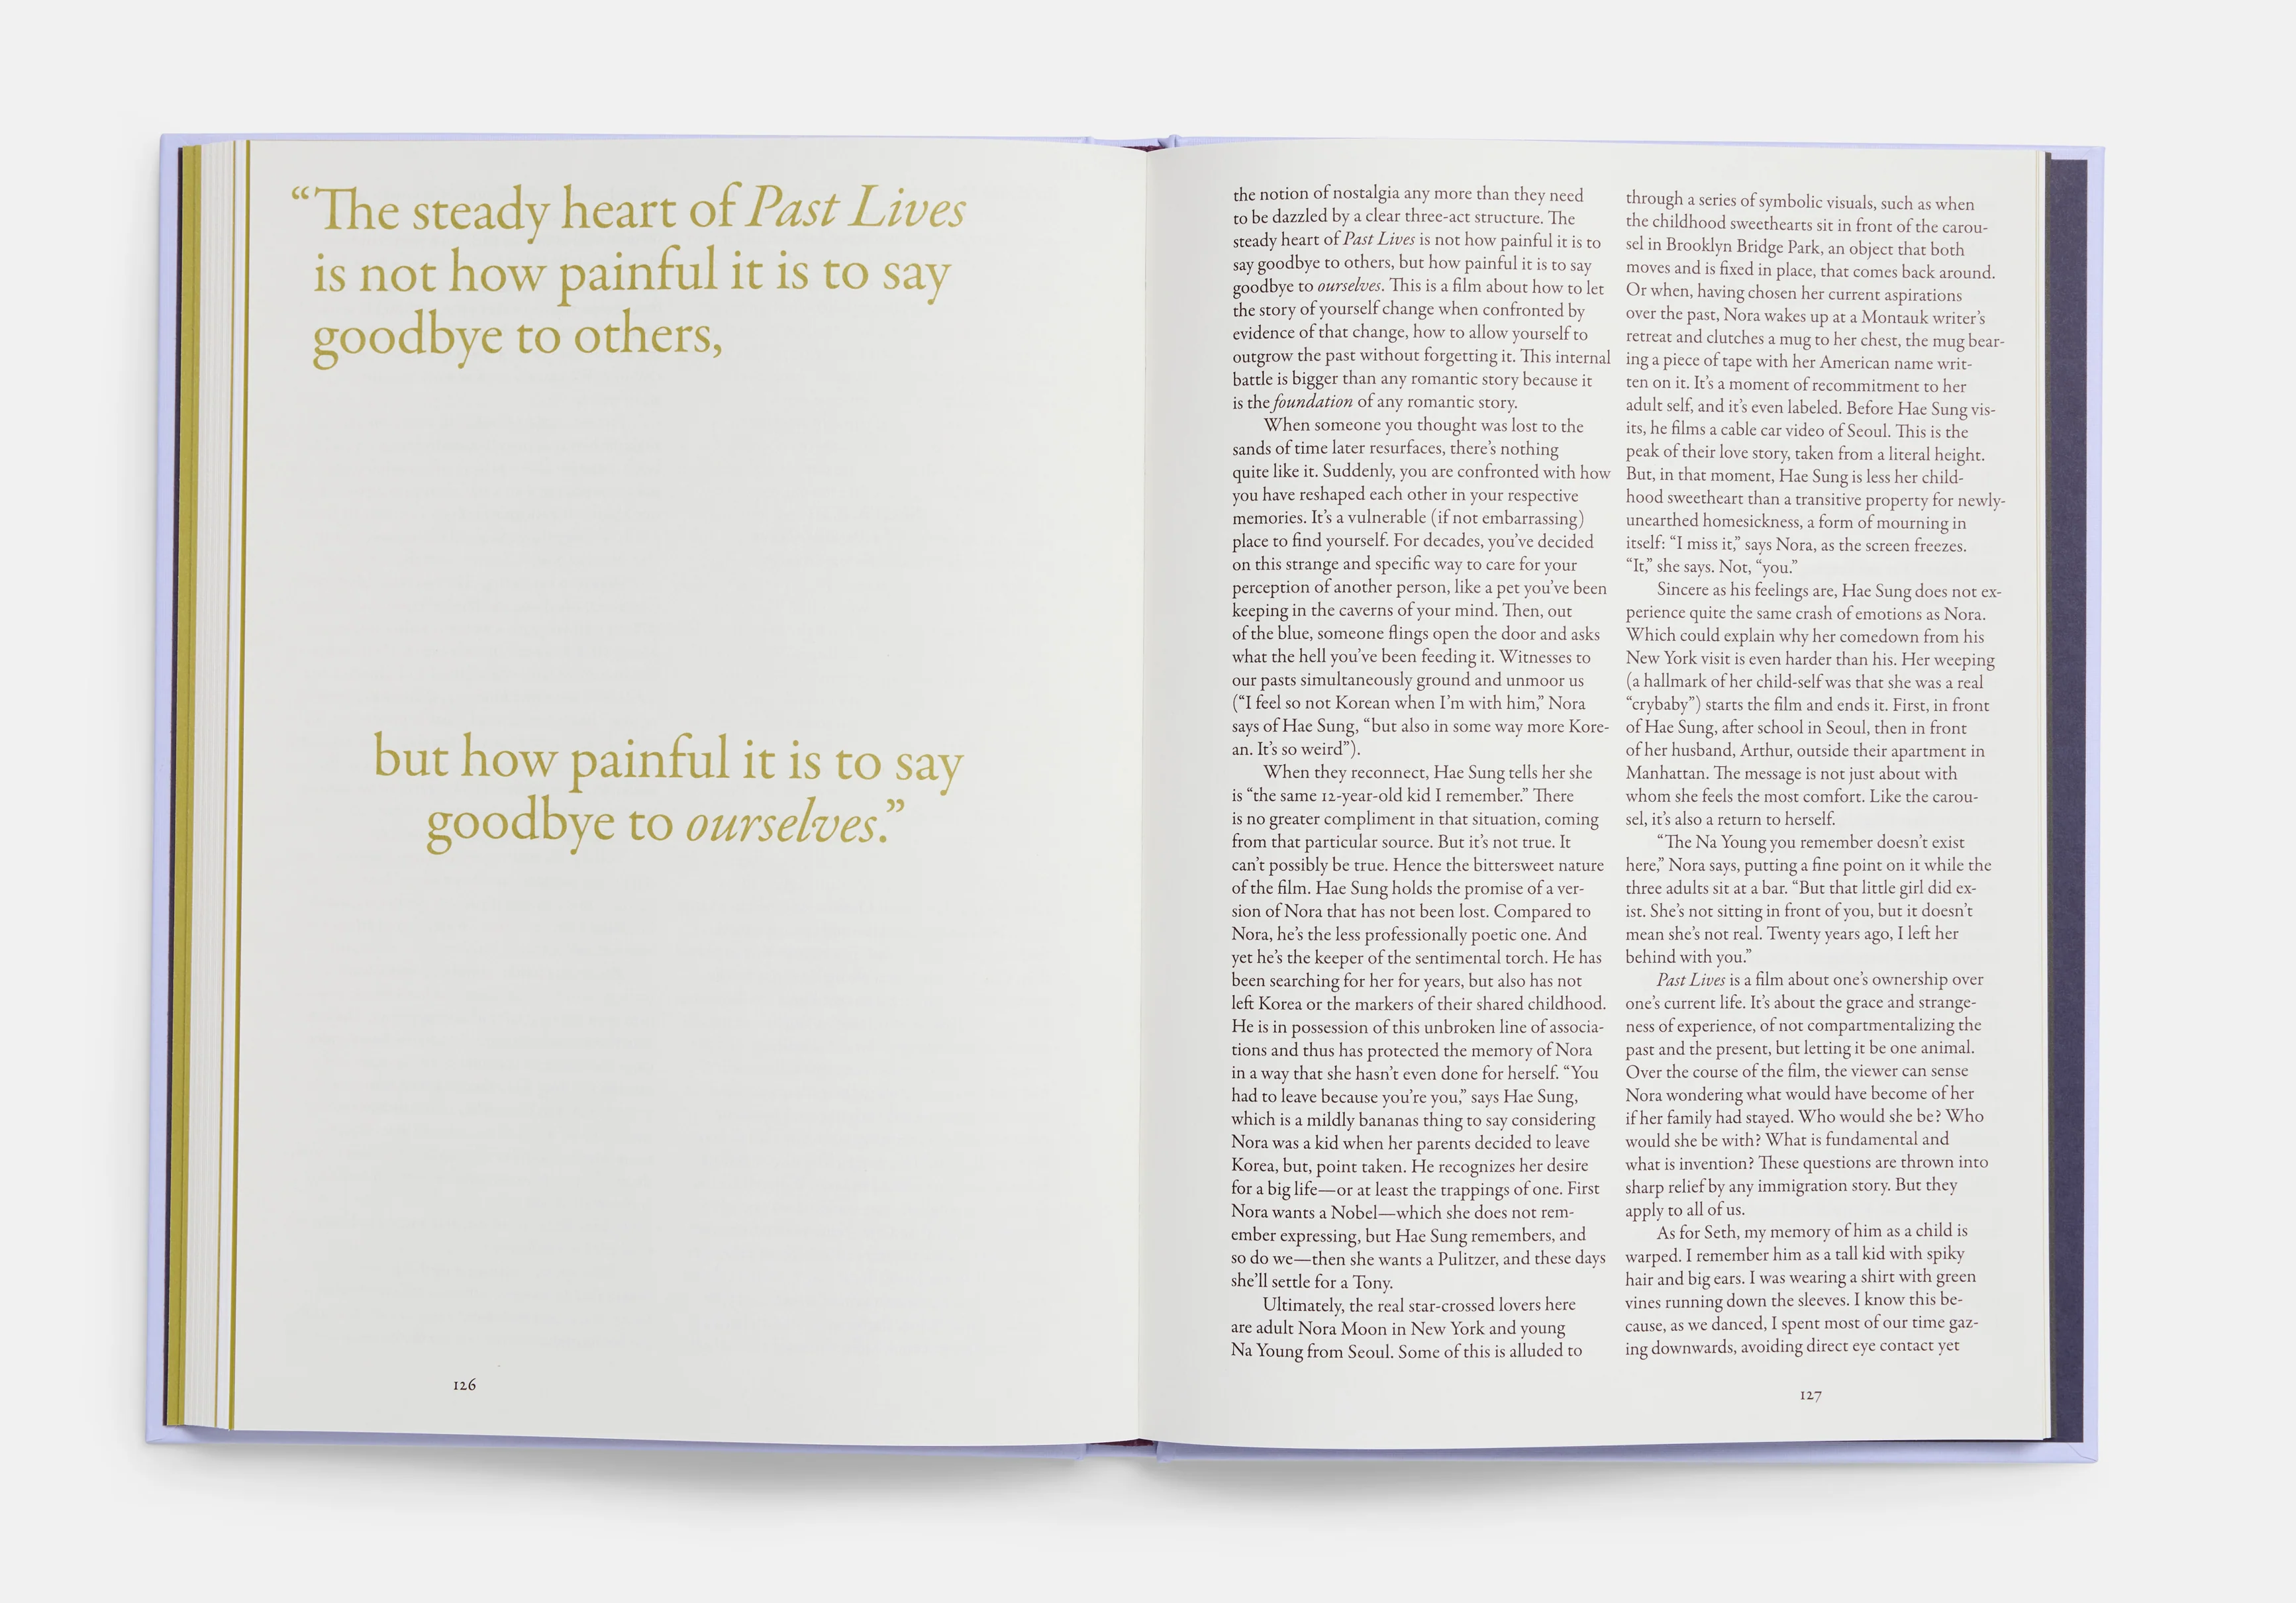 “The steady heart of Past Lives
is not how painful it is to say
goodbye to others,
but how painful it is to say
goodbye to ourselves.”
126
the notion of nostalgia any more than they need
to be dazzled by a clear three-act structure. The
steady heart of Past Lives is not how painful it is to
say goodbye to others, but how painful it is to say
goodbye to ourselves. This is a film about how to let
the story of yourself change when confronted by
evidence of that change, how to allow yourself to
outgrow the past without forgetting it. This internal
battle is bigger than any romantic story because it
is the foundation of any romantic story.
When someone you thought was lost to the
sands of time later resurfaces, there’s nothing
quite like it. Suddenly, you are confronted with how
you have reshaped each other in your respective
memories. It’s a vulnerable (if not embarrassing)
place to find yourself. For decades, you’ve decided
on this strange and specific way to care for your
perception of another person, like a pet you’ve been
keeping in the caverns of your mind. Then, out
of the blue, someone flings open the door and asks
what the hell you’ve been feeding it. Witnesses to
our pasts simultaneously ground and unmoor us
(“I feel so not Korean when I’m with him,” Nora
says of Hae Sung, “but also in some way more Kore-
an. It’s so weird”).
When they reconnect, Hae Sung tells her she
is “the same 12-year-old kid I remember.” There
is no greater compliment in that situation, coming
from that particular source. But it’s not true. It
can’t possibly be true. Hence the bittersweet nature
of the film. Hae Sung holds the promise of a ver-
sion of Nora that has not been lost. Compared to
Nora, he’s the less professionally poetic one. And
yet he’s the keeper of the sentimental torch. He has
been searching for her for years, but also has not
left Korea or the markers of their shared childhood.
He is in possession of this unbroken line of associa-
tions and thus has protected the memory of Nora
in a way that she hasn’t even done for herself. “You
had to leave because you’re you,” says Hae Sung,
which is a mildly bananas thing to say considering
Nora was a kid when her parents decided to leave
Korea, but, point taken. He recognizes her desire
for a big life—or at least the trappings of one. First
Nora wants a Nobel—which she does not rem-
ember expressing, but Hae Sung remembers, and
so do we—then she wants a Pulitzer, and these days
she’ll settle for a Tony.
Ultimately, the real star-crossed lovers here
are adult Nora Moon in New York and young
Na Young from Seoul. Some of this is alluded to
through a series of symbolic visuals, such as when
the childhood sweethearts sit in front of the carou-
sel in Brooklyn Bridge Park, an object that both
moves and is fixed in place, that comes back around.
Or when, having chosen her current aspirations
over the past, Nora wakes up at a Montauk writer’s
retreat and clutches a mug to her chest, the mug bear-
ing a piece of tape with her American name writ-
ten on it. It’s a moment of recommitment to her
adult self, and it’s even labeled. Before Hae Sung vis-
its, he films a cable car video of Seoul. This is the
peak of their love story, taken from a literal height.
But, in that moment, Hae Sung is less her child-
hood sweetheart than a transitive property for newly-
unearthed homesickness, a form of mourning in
itself: “I miss it,” says Nora, as the screen freezes.
“It,” she says. Not, “you.”
Sincere as his feelings are, Hae Sung does not ex-
perience quite the same crash of emotions as Nora.
Which could explain why her comedown from his
New York visit is even harder than his. Her weeping
(a hallmark of her child-self was that she was a real
“crybaby”) starts the film and ends it. First, in front
of Hae Sung, after school in Seoul, then in front
of her husband, Arthur, outside their apartment in
Manhattan. The message is not just about with
whom she feels the most comfort. Like the carou-
sel, it’s also a return to herself.
“The Na Young you remember doesn’t exist
here,” Nora says, putting a fine point on it while the
three adults sit at a bar. “But that little girl did ex-
ist. She’s not sitting in front of you, but it doesn’t
mean she’s not real. Twenty years ago, I left her
behind with you.”
Past Lives is a film about one’s ownership over
one’s current life. It’s about the grace and strange-
ness of experience, of not compartmentalizing the
past and the present, but letting it be one animal.
Over the course of the film, the viewer can sense
Nora wondering what would have become of her
if her family had stayed. Who would she be? Who
would she be with? What is fundamental and
what is invention? These questions are thrown into
sharp relief by any immigration story. But they
apply to all of us.
As for Seth, my memory of him as a child is
warped. I remember him as a tall kid with spiky
hair and big ears. I was wearing a shirt with green
vines running down the sleeves. I know this be-
cause, as we danced, I spent most of our time gaz-
ing downwards, avoiding direct eye contact yet
127